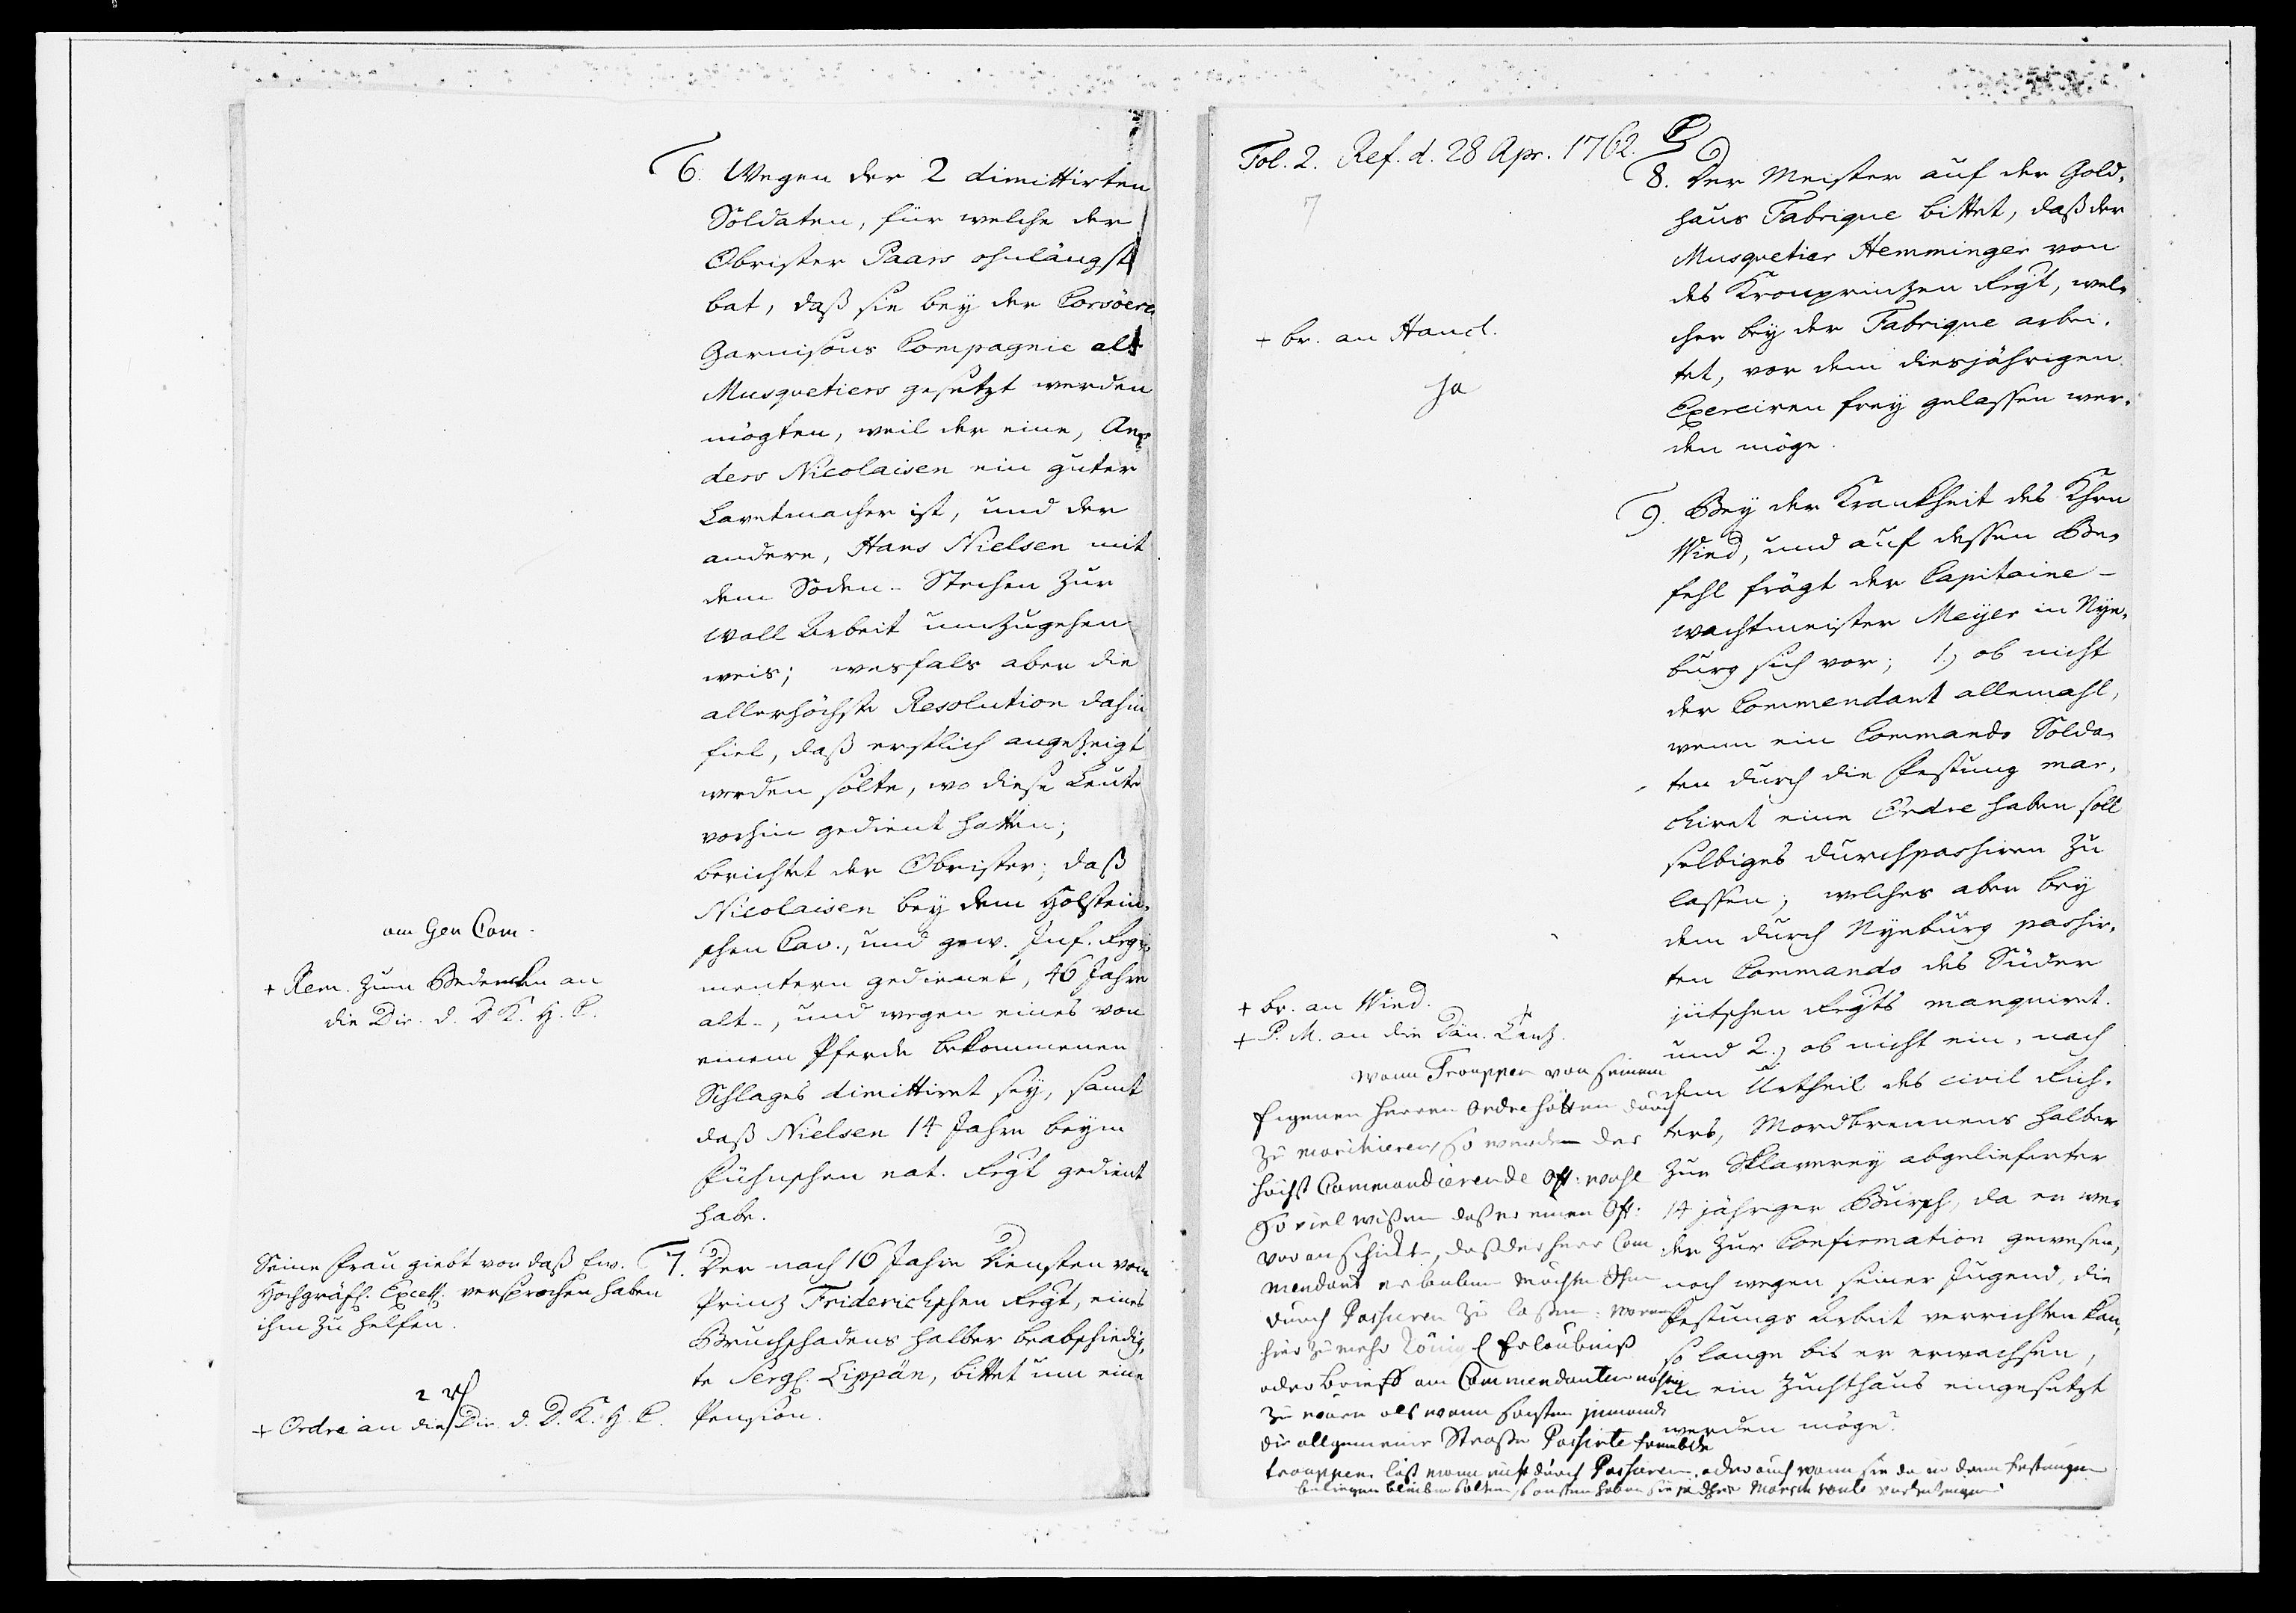 6. Wegen der 2 dimittirten
Soldaten, für welche der
Obrister Paars ohnlängst
bat, daß sie bey der Corsöer
Garnisons Compagnie als
Musquetiers gesetzt werden
mögten, weil der eine, An=
ders Nicolaisen ein guter
Lavetmacher ist, und der
andere, Hans Nielsen mit
dem Soden-Stechen zur
Wall Arbeit umzugehen
weis; wesfals aber die
allerhöchste Resolution dahin
fiel, daß erstlich angezeigt
werden solte, wo diese Leute
vorhin gedient hatten;
berichtet der Obrister; daß
Nicolaisen bey dem Holstein=
schen Cav., und gew. Inf. Regi=
mentern gedienet, 46 Jahre
alt, und wegen eines von
einem Pferde bekommenen
Schlages dimittiret sey, samt
daß Nielsen 14 Jahre beym
Fühnschen nat. Regt gedient
habe.
am Gen Com.
+ Rem. zum Bedencken an
die Dir. d. D. K. H. C.
7. Der nach 16 Jahre Diensten vom
Prinz Friderichschen Regt, eines
Bruchschadens halber beabschiedig=
te Serg. Lippän, bittet um eine
Pension.
Seine Frau giebt vor daß Ew.
Hochgräfl. Excell. versprochen haben
ihm zu helfen.
2 rth
+ Ordre an die Dir. d. D. K. H. C.
Fol. 2. Ref. d. 28 Apr. 1762.
7
8. Der Meister auf der Gold=
haus Fabrique bittet, daß der
Musquetier Hemminger von
des Kronprinzen Regt, wel=
cher bey der Fabrique arbei=
tet, vor dem diesjährigen
Exerciren frey gelassen wer=
den möge.
+ br. an Hauch.
Ja
9. Bey der Krankheit des Hhrn
Wied, und auf dessen Be=
fehl frägt der Capitaine-
wachtmeister Meyer in Nye=
burg sich vor; 1.) ob nicht
der Commendant allemahl,
wenn ein Commando Solda=
ten durch die Festung mar=
chiret eine Ordre haben soll
selbiges durchpassiren zu
lassen; welches aber bey
dem durch Nyeburg passir=
ten Commando des Süder
jütschen Regts manquiret.
und 2.) ob nicht ein, nach
dem Urtheil des civil Rich=
ters, Mordbrennens halber
zur Sklaverey abgelieferter
14 jähriger Bursch, da er we=
der zur Confirmation gewesen,
noch wegen seiner Jugend, die
Festungs Arbeit verrichten kan,
so lange bis er erwachsen,
in ein Zuchthaus eingesetzt
werden möge?
+ br. an Wied.
+ P. M. an die Dän. Cantz.
wann Trouppen von seinem
Eigenen Herren Ordre hätten durch
zu marchieren, so werden der
höchst Commandierende Off: wohl
so viel wißen daß er einen Off:
voran schickte, daß der Herr Com
mendant erlauben möchte Ihm
durch Passieren zu laßen. woran
hier zu mehr Königl Erlaubniß
oder brieff am Commendanten nöhtig
zu wären als wann sonsten jemands
die allgemeine Straße Passirte frembde
trouppen läst mann nicht durch Passieren, oder auch wann sie da in denen Festungen
beliegen bleiben solten, sonsten haben sie ja Ihre March route vorzuzeigen